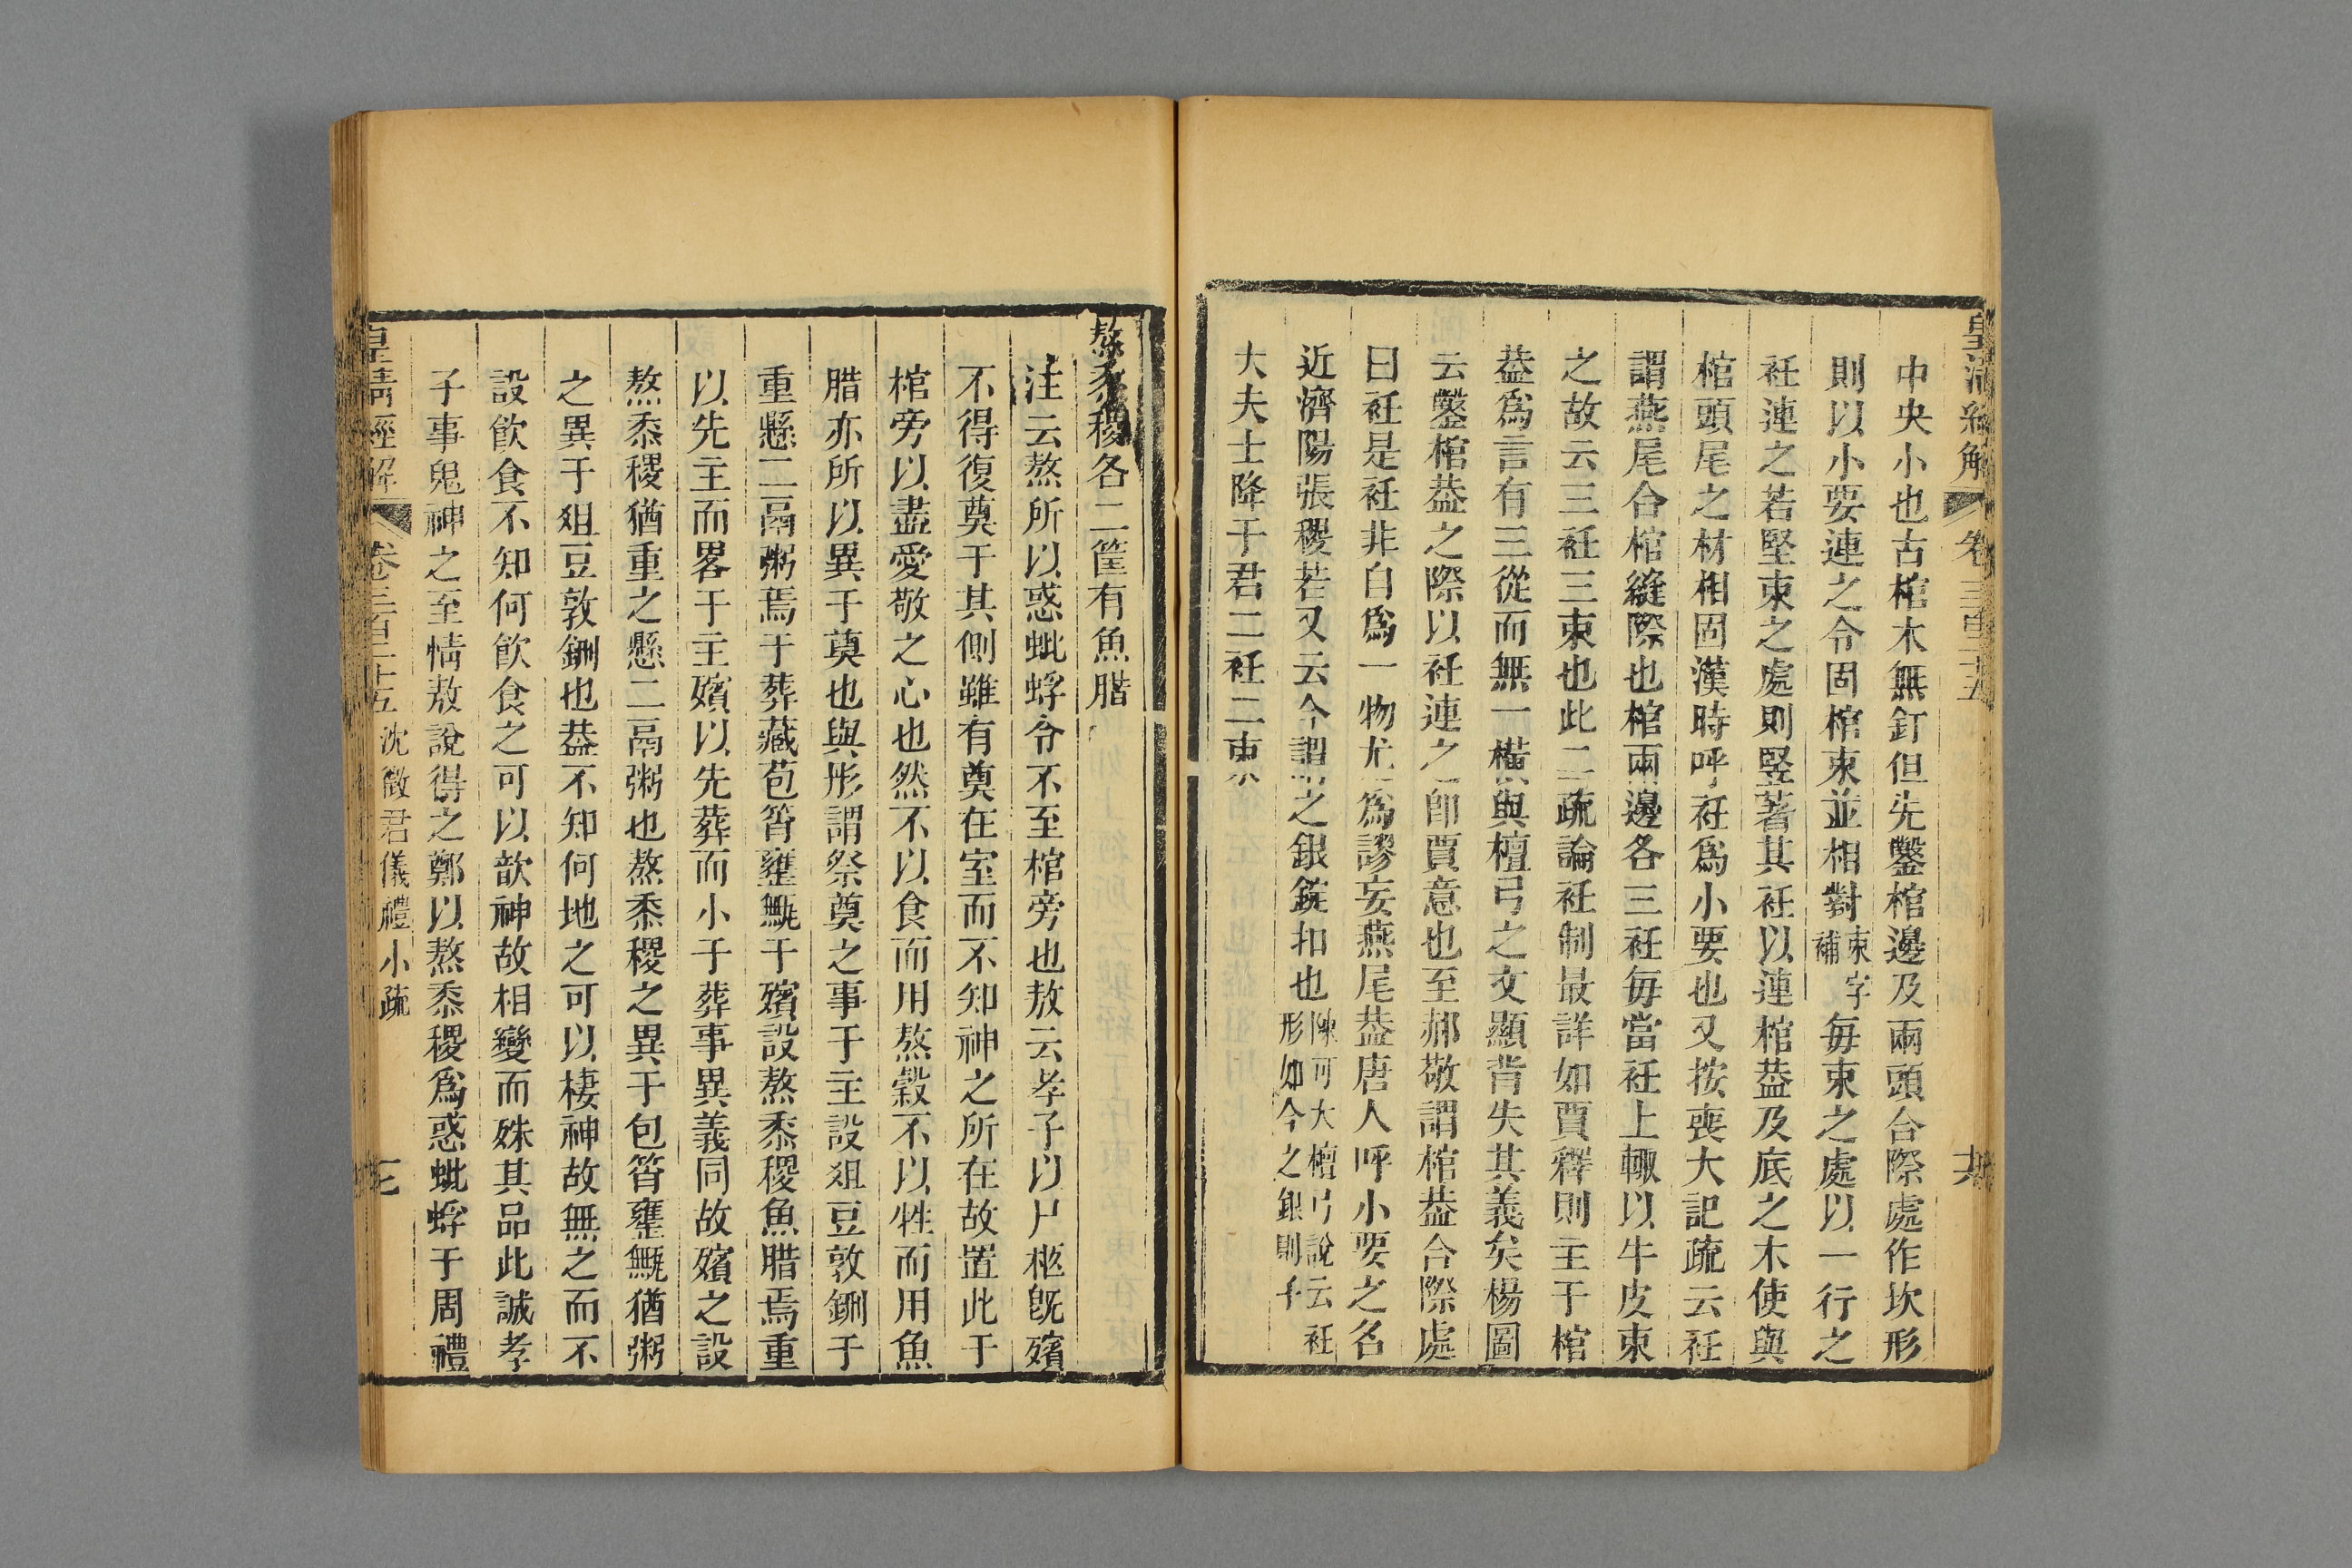 皇清經解 卷三百二十五
中央小也古棺木無釘但先鑿棺邊及兩頭合際處作坎形
則以小要連之令固棺束並相對束字補每束之處以一行之
衽連之若堅束之處則竪著其衽以連棺葢及底之木使與
棺頭尾之材相固漢時呼衽爲小要也又按喪大記疏云衽
謂燕尾合棺縫際也棺兩邊各三衽每當衽上輙以牛皮束
之故云三衽三束也此二疏論衽制最詳如賈釋則主于棺
葢爲言有三從而無一橫與檀弓之文顯背失其義矣楊圖
云鑿棺葢之際以衽連之卽賈意也至郝敬謂棺葢合際處
曰衽是衽非自爲一物尤爲謬妄燕尾葢唐人呼小要之名
近濟陽張稷若又云今謂之銀錠扣也陳可大檀弓說云衽形如今之銀則子
大夫士降于君二衽二束
熬黍稷各二筐有魚腊
注云熬所以惑蚍蜉令不至棺旁也敖云孝子以尸柩旣殯
不得復奠于其側雖有奠在室而不知神之所在故置此于
棺旁以盡愛敬之心也然不以食而用熬穀不以牲而用魚
腊亦所以異于奠也與彤謂祭奠之事于主設俎豆敦鉶于
重懸二鬲粥焉于葬藏苞筲罋甒于殯設熬黍稷魚腊焉重
以先主而畧于主殯以先葬而小于葬事異義同故殯之設
熬黍稷猶重之懸二鬲粥也熬黍稷之異于包筲罋甒猶粥
之異于俎豆敦鉶也葢不知何地之可以棲神故無之而不
設飮食不知何飮食之可以歆神故相變而殊其品此誠孝
子事鬼神之至情敖說得之鄭以熬黍稷爲惑蚍蜉于周禮
皇清經解 卷三百二十五 沈徵君儀禮小疏